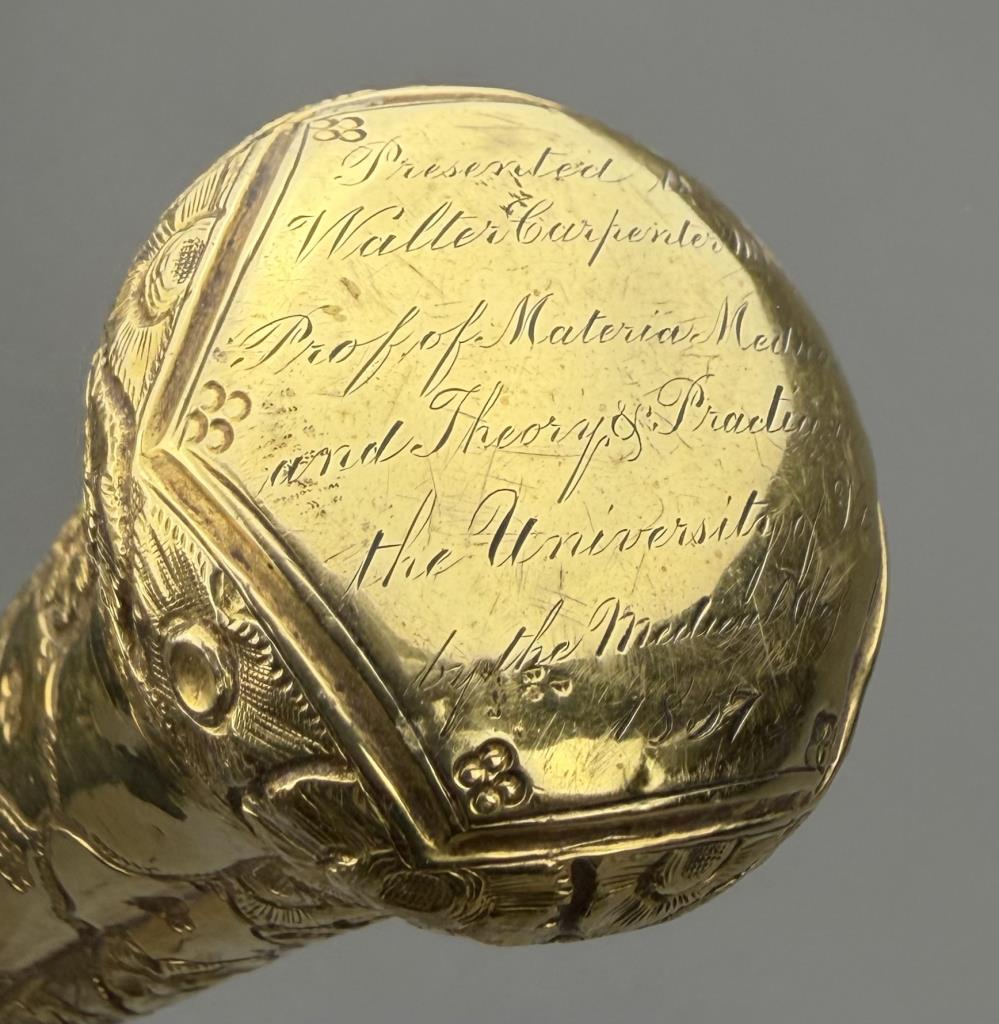 Presented
to
Walter Carpenter
Prof. of Materia
and Theory & Practice
the University of
by the Medical
1857